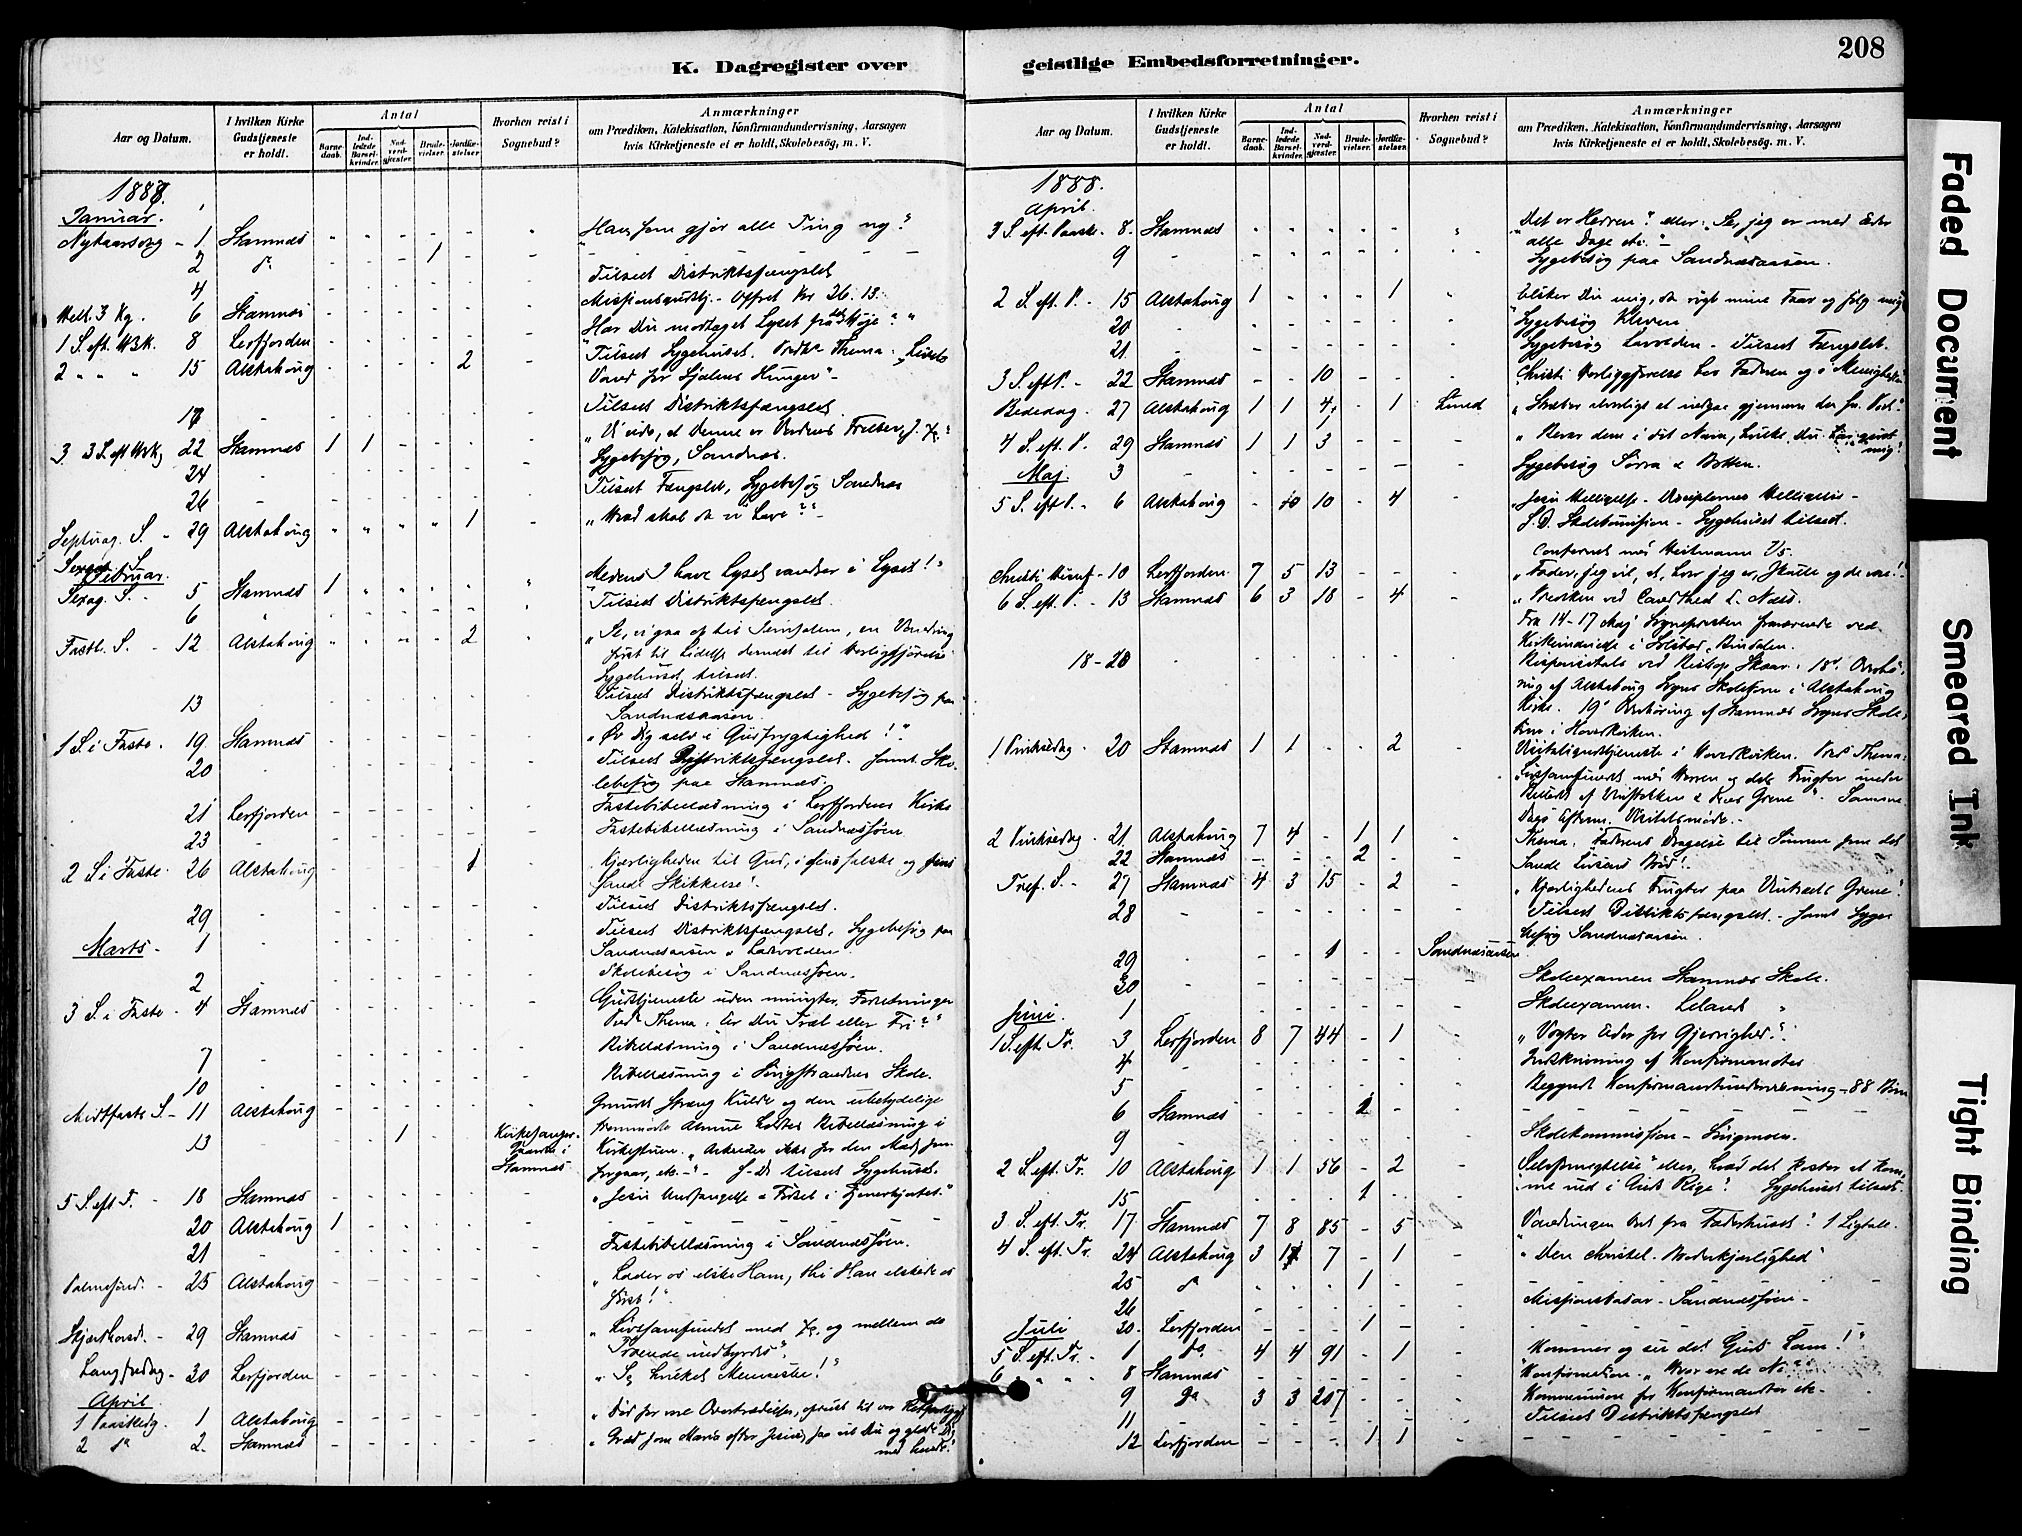 208
K. Dagregister over geistlige Embedsforretninger.
Aar og Datum.
I hvilken Kirke Gudstjeneste er holdt.
Antal
Barnedaab.
Indledede Barselkvinder.
Nadverdgjæster.
Brudevielser.
Jordfæstelser.
Hvorhen reist i Sognebud?
Anmærkninger
om Prædiken, Katekisation, Konfirmandundervisning, Aarsagen
hvis Kirketjeneste ei er holdt, Skolebesøg, m. V.
1888.
Januar.
Nytaarsdag - 1 Stamnæs - - - - - „Han, som gjør alle Ting ny"
2 do - - - 1 -
4 - - - - - Tilseet Distriktsfængslet
Hell. 3 Kg. 6 Stamnæs - - - - - Missionsgudstj. - Offret Kr 26.13.
1 S. eft. H3K. 8 Leirfjorden - - - - - Har Du modtaget Lyset fra det Høje?"
2 " " " 15 Alstahoug - - - - 2 Tilseet Sygehuset. Præd. Thema: „Livets
Vand for Sjælens Hunger"
17 - Tilseet Distriktsfængslet.
3 S. eft H3K 22 Stamnæs 1 1 - - - „Vi vide, at Denne er Verdens Frelser,
24 - Sygebesøg, Sandnæs.
26 - Tilseet Fængslet, Sygebesøg Sandnæs
Septuag. S. - 29 Alstahoug " " " " 1 „Hvad skal da vi have?"
Februar.
Sexag. S. - 5 Stamnæs 1 " " " " „Medens I have Lyset vandrer i Lyset!"
6 Tilseet Distriktsfængslet.
Fastl. S. - 12 Alstahoug " " " - 2 „Se, vi gaa op til Jerusalem, en Vandring
først til Lidelse dernæst til Herliggjørelse
Sygehuset tilseet.
13 Tilseet Distriktsfængslet - Sygebesøg paa
Sandnæsaasen.
1 S. i Faste. 19. Stamnæs - - - - - „Øv Dig selv i Gudfrygtighed!"
20 Tilseet Distriktsfængslet. samt Sko-
lebesøg paa Stamnæs.
21 Leirfjorden - - - - - Fastebibellæsning i Leirfjordens Kirke
23 - Fastebibellæsning i Sandnæssjøen
2 S. i Faste. 26 Alstahoug - - - - 1 Kjærligheden til Gud, i dens Følelse og dens
sande Skikkelse!
29 Tilseet Distriktsfængslet.
Marts - 1 Tilseet Distriktsfængslet, Sygebesøg paa
Sandnæsaasen
2 Skolebesøg i Sandnæssjøen.
3 S. i Faste - 4 Stamnæs - - - - - Gudstjeneste uden ministr. Forretninger
Præd. Thema: Er Du Træl eller Fri?"
7 Bibellæsning i Sandnæssjøen.
10 Bibellæsning i Skole.
Midtfaste S. - 11 Alstahoug - - - - - Grundet stræng Kulde og den ubetydelige
13 - - - 1 - - Kirkesanger-
gaarde i
Stamnæs
fremmødte Almue holdtes Bibellæsning i
Kirkestuen. „Arbeider ikke for den Mad, som
forgaar, etc." - tilseet Sygehuset.
5 S. eft F. - 18 Stamnæs - - - - - „Jesu Undfangelse og Fødsel i Hjertet."
20 Alstahoug 1 - - - -
21 - Fastebibellæsning i Sandnæssjøen.
Palmesønd. - 25 Alstahoug - - - - - „Lader os elske Ham, thi Han elskede os
først!"
Skjærthorsd. - 29 Stamnæs - - - - - „Livssamfundet med og mellem de
Troende indbyrdes".
Langfredag - 30 Leirfjorden - - - - - „Se, hvilket Menneske!"
April
1 Paaskedg. 1 Alstahoug - - - - - „Død for vore Overtrædelser, opreist til vor Retfærdiggj
2 do 2. Stamnæs - - - - - „Græd som Maria efter Jesus, saa vil Du og glæde Dig
med hende!
Aar og Datum.
I hvilken Kirke Gudstjeneste er holdt.
Antal
Barnedaab.
Indledede Barselkvinder.
Nadverdgjæster.
Brudevielser.
Jordfæstelser.
Hvorhen reist i Sognebud?
Anmærkninger
om Prædiken, Katekisation, Konfirmandundervisning, Aarsagen
hvis Kirketjeneste ei er holdt, Skolebesög. m. V.
1888.
April.
3 S. eft. Paaske. 8. Stamnæs - - - - - „Det er Herren", eller: „Se, jeg er med Eder
alle Dage etc."
9 - Sygebesøg paa Sandnæsaasen.
2 S. eft. P. - 15 Alstahoug 1 - - - 1 „Elsker Du mig, da vogt mine Faar og følg mig
20 Sygebesøg Kleven
21. Sygebesøg - Tilseet Fængslet.
3 S. eft P. - 22 Stamnæs - - 10 - - Christi Herliggjørelse hos Faderen og i Menigheden
Bededag - 27 Alstahoug 1 1 4 - 1 Lund „Stræber alvorligt at indgaa gjennem den sn. Port".
4 S. eft. P. 29 Stamnæs 1 1 3 „Bevar dem i dit Navn, hvilke Du har givet
mig"
Maj. 3 - Sygebesøg Sørra & Botten.
5 S. eft P. - 6 Alstahoug - 10 10 - 4 „Jesu Helligelse - Disciplenes Helligelse -
S. D. Skolekomission - Sygehuset tilseet.
Conferert med Heitmann 7/5.
Christi Himf. - 10 Leirfjorden 7 5 13 - - „Fader, jeg vil, at, hvor jeg er, skulle og de være!"
6 S. eft. P. - 13 Stamnæs 6 3 18 - 4 „Prædiken ved Cand. theol. L. Næss.
Fra 14-17 Maj Sognepresten fraværende ved
Kirkeindvielse i Solstad, Bindalen.
18-20 Bispevisitats ved Biskop Skaar: 18de Overhø-
ring af Alstahoug Sogns Skolebørn i Alstahoug
Kirke. 19de Overhøring af Stamnæs Sogns Skole-
børn i Hovedkirken.
1 Pinsedag - 20 Stamnæs 1 1 - - 2 Visitatsgudstjeneste i Hovedkirken. Præd. Thema:
Livssamfundet med Herren og dets Frugter under
Billedet af Vinstokken & dens Grene". Samme
Dags Afterm. Visitatsmøde.
2 Pinsedag - 21. Alstahoug 7 4 - 1 1 Thema: Faderens Dragelse til Sønnen som det
22 Stamnæs - - - 2 - sande Livsens Brød!
Tref. S. - 27 Stamnæs 4 3 15 - 2 „Kjærlighedens Frugter paa Vintræets Grene!
28 Tilseet Distriktsfængslet - samt Syge-
besøg Sandnæsaasen.
29 - - 1 - - Sandnæsaasen
30 - Skoleexamen Stamnæs Skole.
Juni. 1 Skoleexamen. Leland "
1 S. eft. Tr. 3 Leirfjorden 8 7 44 - 1 „Vogter Eder for Gjerrighed".
4 Indskrivning af Konfirmander
5 Begyndt Konfirmandundervisning - 88 Børn
6 Stamnæs - - - 2 -
9 Skolekommission -
2 S. eft. Tr. 10 Alstahoug 1 1 56 - 2 „Selvfornegtelse" eller, hvad det koster at kom-
15 - - - 1 - me ind i Guds Rige! Sygehuset tilseet.
3 S. eft. Tr. 17 Stamnæs 7 8 85 - 5 Vandringen bort fra Faderhuset! 1 Ligtale.
4 S. eft. Tr. 24 Alstahoug 3 1 7 - 1 „Den Christel. Broderkjærlighed"
25 do - - - 1 -
26 Missionsbasar - Sandnæssjøen -
Juli 30. Leirfjorden - - - 1 -
5 S. eft. Tr. 1 do 4 4 91 - 1 Kommer og ser det Guds Lam!"
6 " " " 8 Stamnæs „Konfirmation - „Hvor ere de Ni?"
9 do 3 3 207 - - Kommunion for Konfirmander etc.
11 Tilseet Distriktsfængslet
12 Leirfjorden - - - 1 1
Faded Document
Smeared Ink
Tight Binding